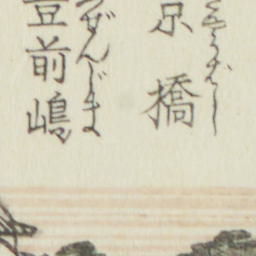 京橋
きやうばし
豊前嶋
ぶぜんじま